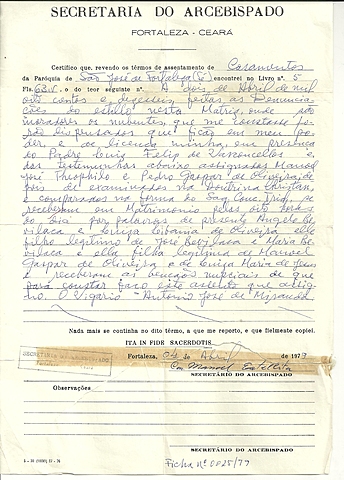 SECRETARIA DO ARCEBISPADO
FORTALEZA - CEARÁ
Certifico que, revendo os têrmos de assentamento de Casamentos
da Paróquia de São José de Fortaleza (Sé) encontrei no Livro nº. 5
Fls. 63.v. o do teor seguinte nº. A dois de Abril de mil
oito centos e dezesseis, feitas as Denuncia
ções do estillo nesta Matriz, onde são
moradores os nubentes, que me mostrarão
rão dispensados que fição em meu po
der e de licença minha, em presença
do Padre Luiz Felip de Vasconcellos e
das testemunhas abaixo assignadas Manoel
José Theophilo e Pedro Gaspar de Oliveira, de
pois de examinados na Doutrina Christan,
e comparados na forma do Sag. Conc. Trid., se
receberam em Matrimonio pelas oito horas
do dia por palavras de presente Angelo Be
vilaca e Luiza Libania de Oliveira elle
filho legitimo de José Bevilaca e Maria Be
vilaca e ella filha legitima de Manoel
Gaspar de Oliveira e de Luiza Maria de Jesus
e receberam as benções nupciais de que
para constar faço este assento que assig
no. O Vigario - Antonio José de Miranda
Nada mais se continha no dito têrmo, a que me reporto, e que fielmente copiei.
ITA IN FIDE SACERDOTIS
SECRETARIA DO ARCEBISPADO
Fortaleza, 04 de Abril de 1979
Con. Manoel
SECRETÁRIO DO ARCEBISPADO
Observações:
SECRETÁRIO DO ARCEBISPADO
Ficha nº 0025/77